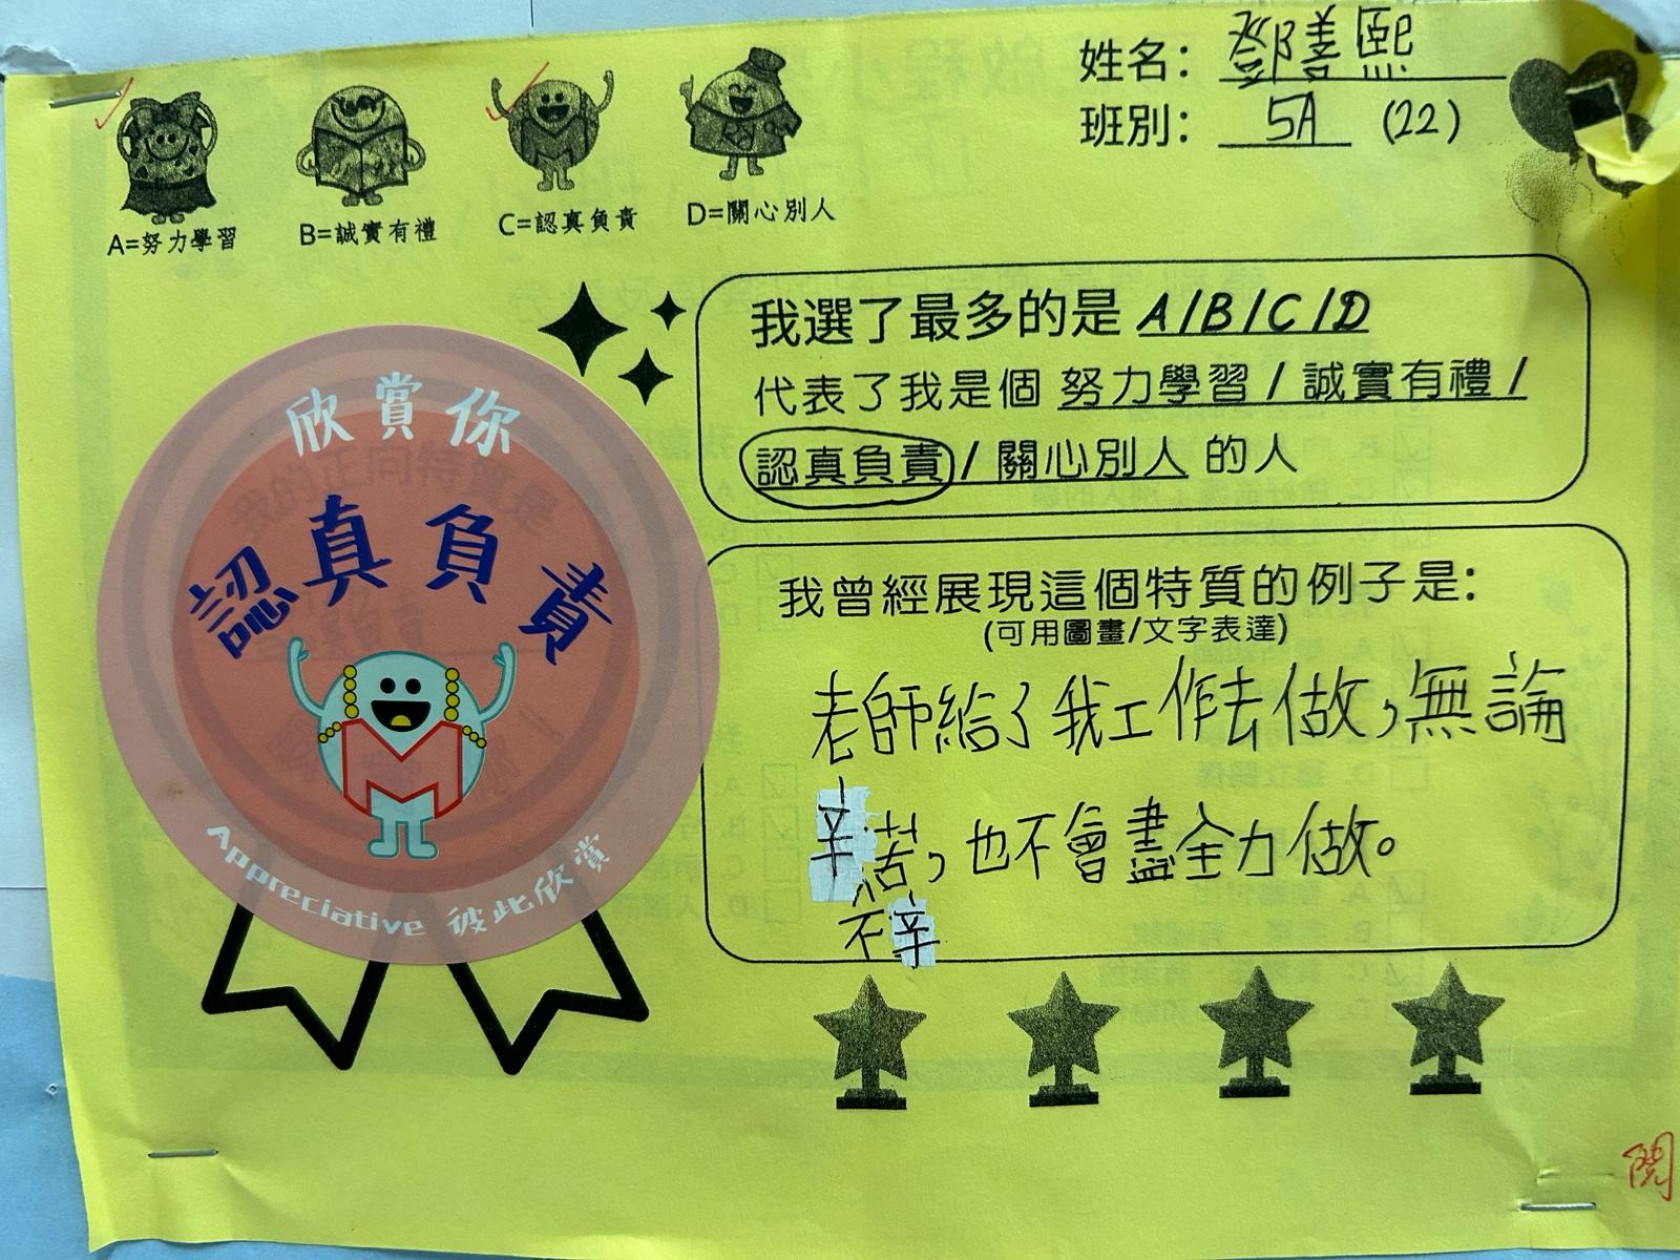 姓名: 鄧善熙
班別: 5A (22)
A=努力學習
B=誠實有禮
C=認真負責
D=關心別人
我選了最多的是 A/B/C/D
代表了我是個 努力學習 / 誠實有禮 /
認真負責 / 關心別人 的人
欣賞你
認真負責
Appreciative 彼此欣賞
我曾經展現這個特質的例子是:
(可用圖畫/文字表達)
老師給了我工作去做,無論
辛苦,也不會盡全力做。
不辛
閱